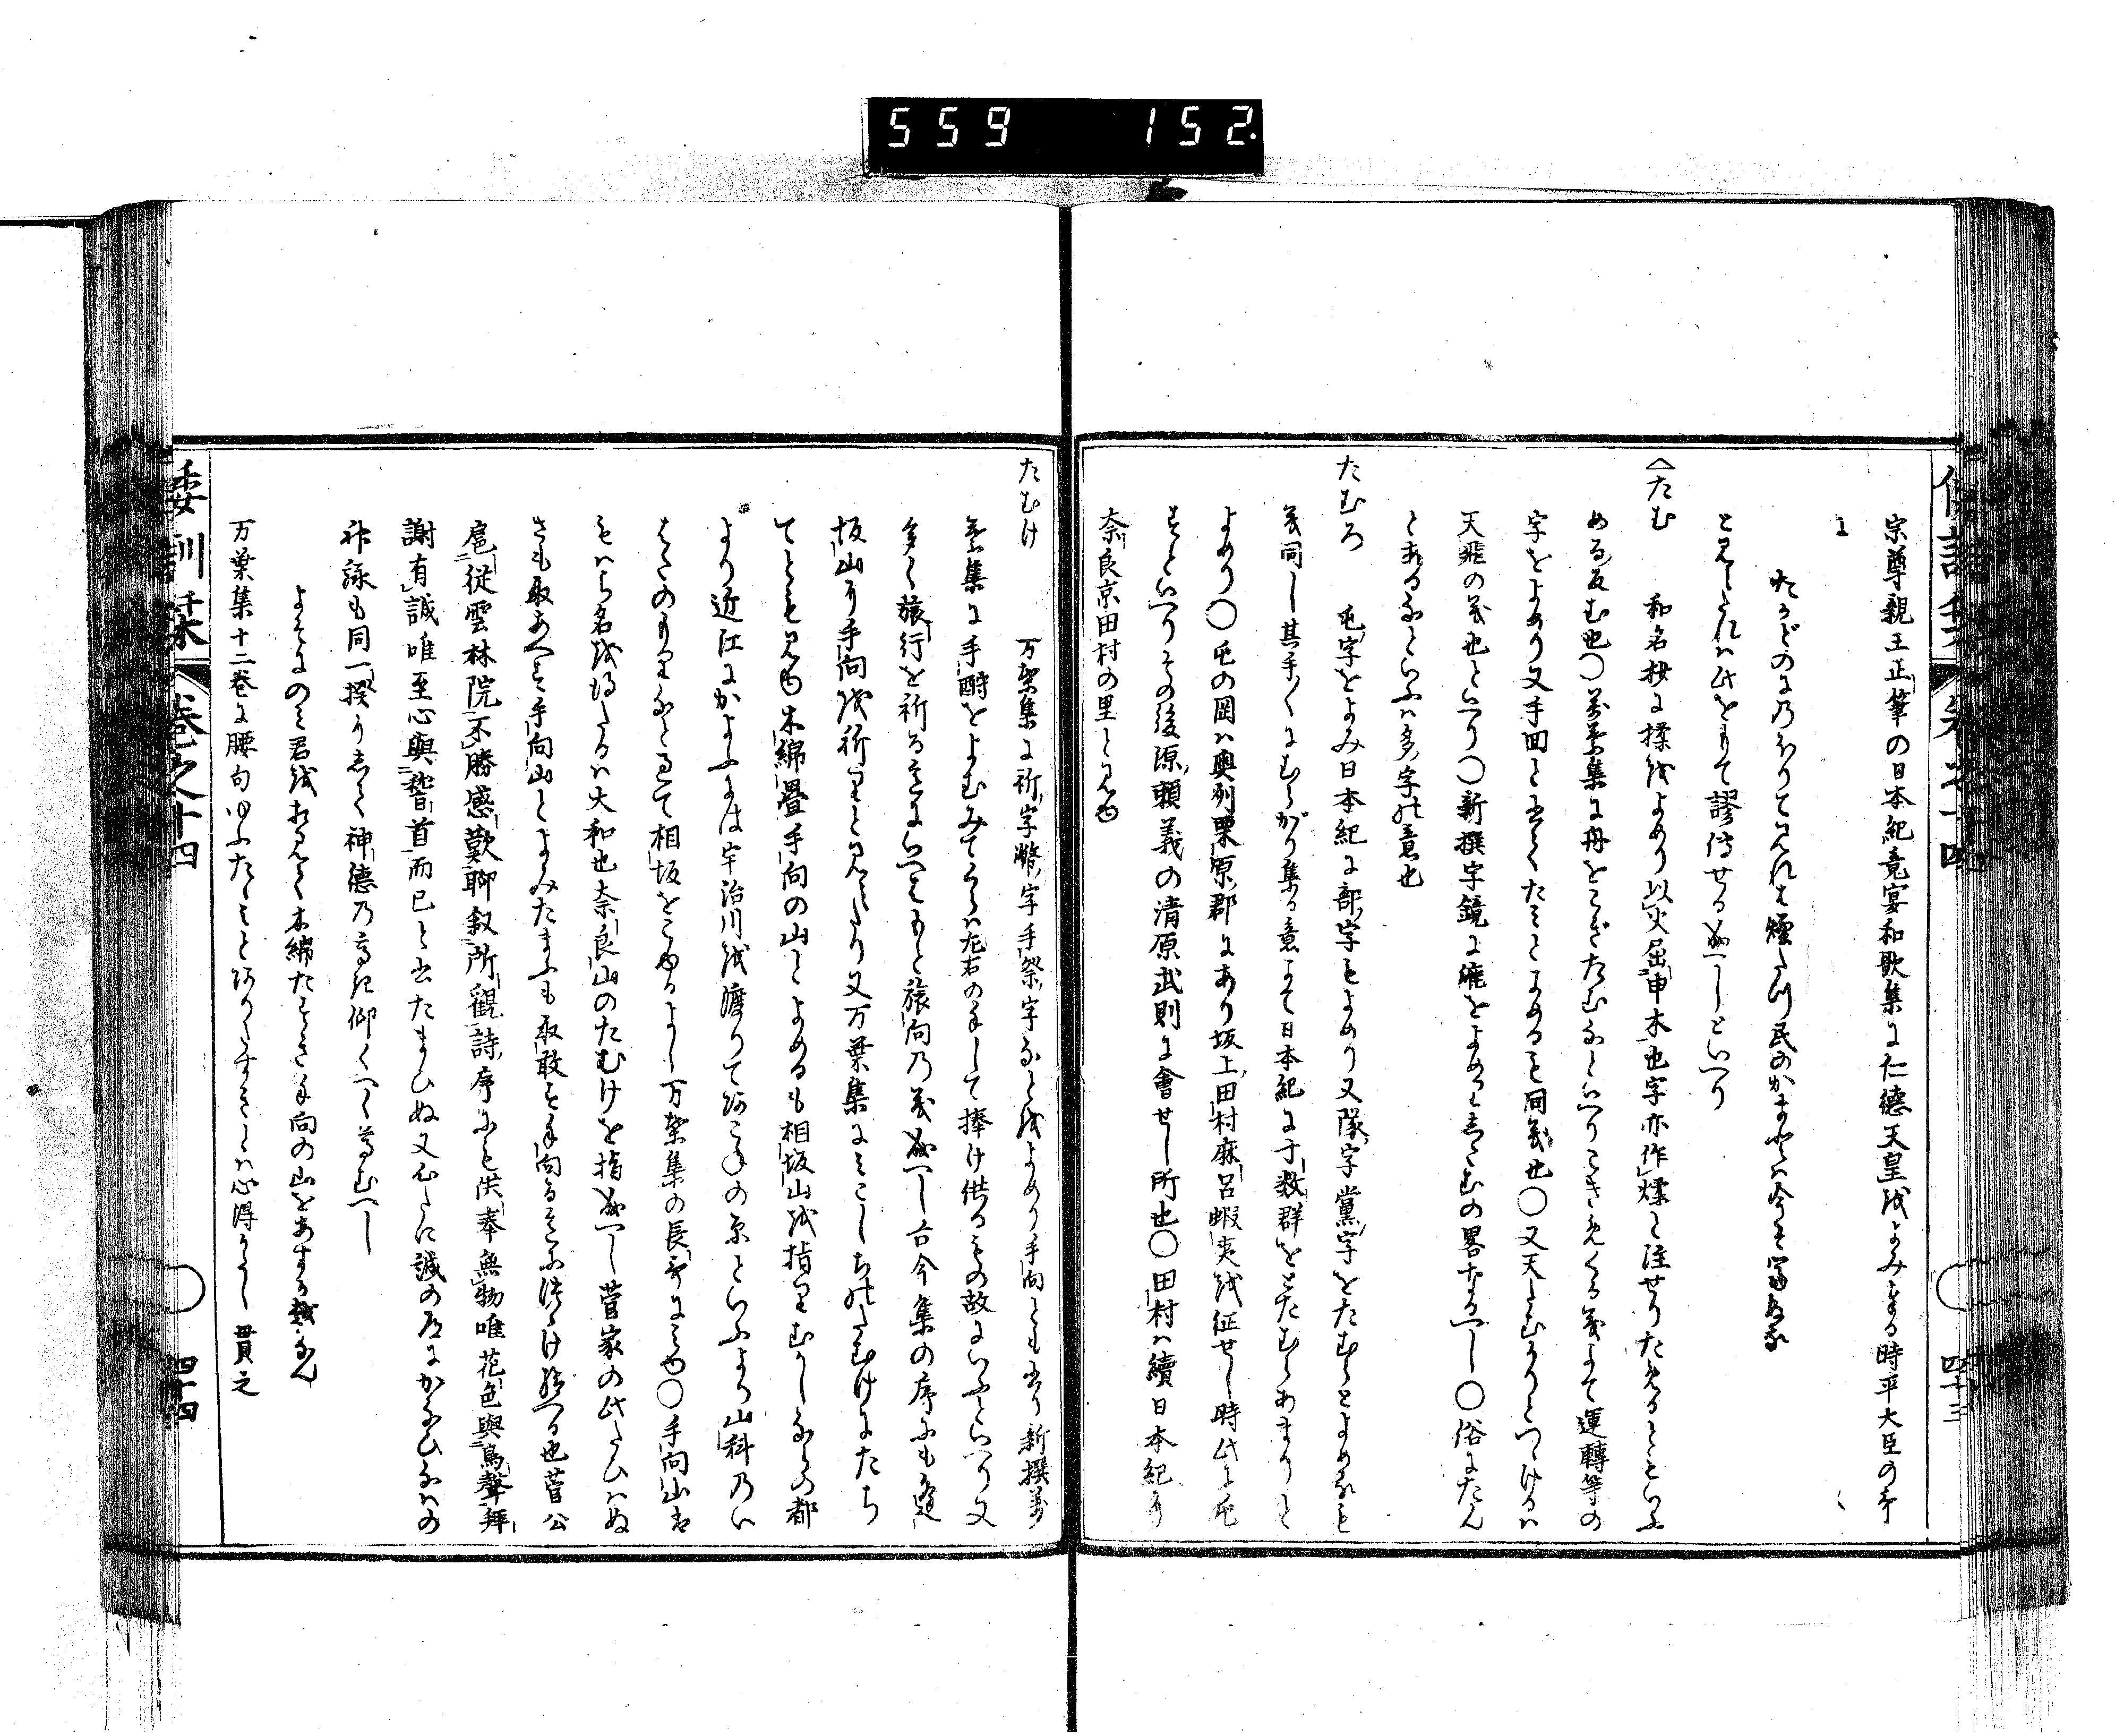 559 152.
宗尊親王正筆の日本紀竟宴和歌集に仁徳天皇をよみ奉る時平大臣の歌
に
たかどのにのぼりて見れは煙たつ民のかまどは今そ富ぬる
と見えたれは此をもて謬傳せる成へしといへり
たむ 和名抄に揉をよめり以火屈申木也字亦作煣と注せりためるともいふ
める反む也○萬葉集に舟をこぎたむなといへりこきめくる義にて運轉等の
字をよめり又手回と書てたみとよめるも同義也○又天たむかりとつゝけるは
天飛の義也といへり○新撰字鏡に
とあるなといふは多字の意也
たむろ 屯字をよみ日本紀に部字もよめり又隊字黨字をたむらとよめるも
義同し其手〱にむらがり集る意にて日本紀に于数群をとたむらあまりと
よめり○屯の岡は奥州栗原郡にあり坂上田村麻呂蝦夷を征せし時此に屯
すといへりその後源頼義の清原武則に會せし所也○田村は續日本紀に
奈良京田村の里と見ゆ
倭訓栞 巻之十四 四十三
たむけ 万葉集に祈字幣字手祭字なとをよめり手向とも書り新撰萬
葉集に手酹をよむみてくらは左右の手して捧け供るもの故にいふといへり又
多く旅行を祈る事にいへはもと旅向の義成へし古今集の序にも逢
坂山に手向を祈りと見えたり又万葉集にみこしちのたむけにたち
てとも見ゆ木綿疊手向の山とよめるも相坂山を指りむかしならの都
より近江にかよふには宇治川を渡りてあこねの原といふより山科のい
はたのもりなと過て相坂をこゆるよし万葉集の長歌にみゆ○手向山は
もはら名を得たるは大和也奈良山のたむけを指成へし菅家の此たひはぬ
さも取あへす手向山とよみたまふも取敢す手向るそふ
扈從雲林院不勝感歎聊叙所觀詩序にも供奉無物唯花色與鳥聲拜
謝有誠唯至心與誓首而已と書たまひぬ又心たに誠の道にかなひなはの
御詠も同一揆にして神徳の高き仰くへく尊むへし
よそにのみ君をあひ見て木綿たすき手向の山をあすか越なん
万葉集十二巻に腰句ゆふたゝみとありたすきとは心得かたし 貫之
倭訓栞 巻之十四 四十四